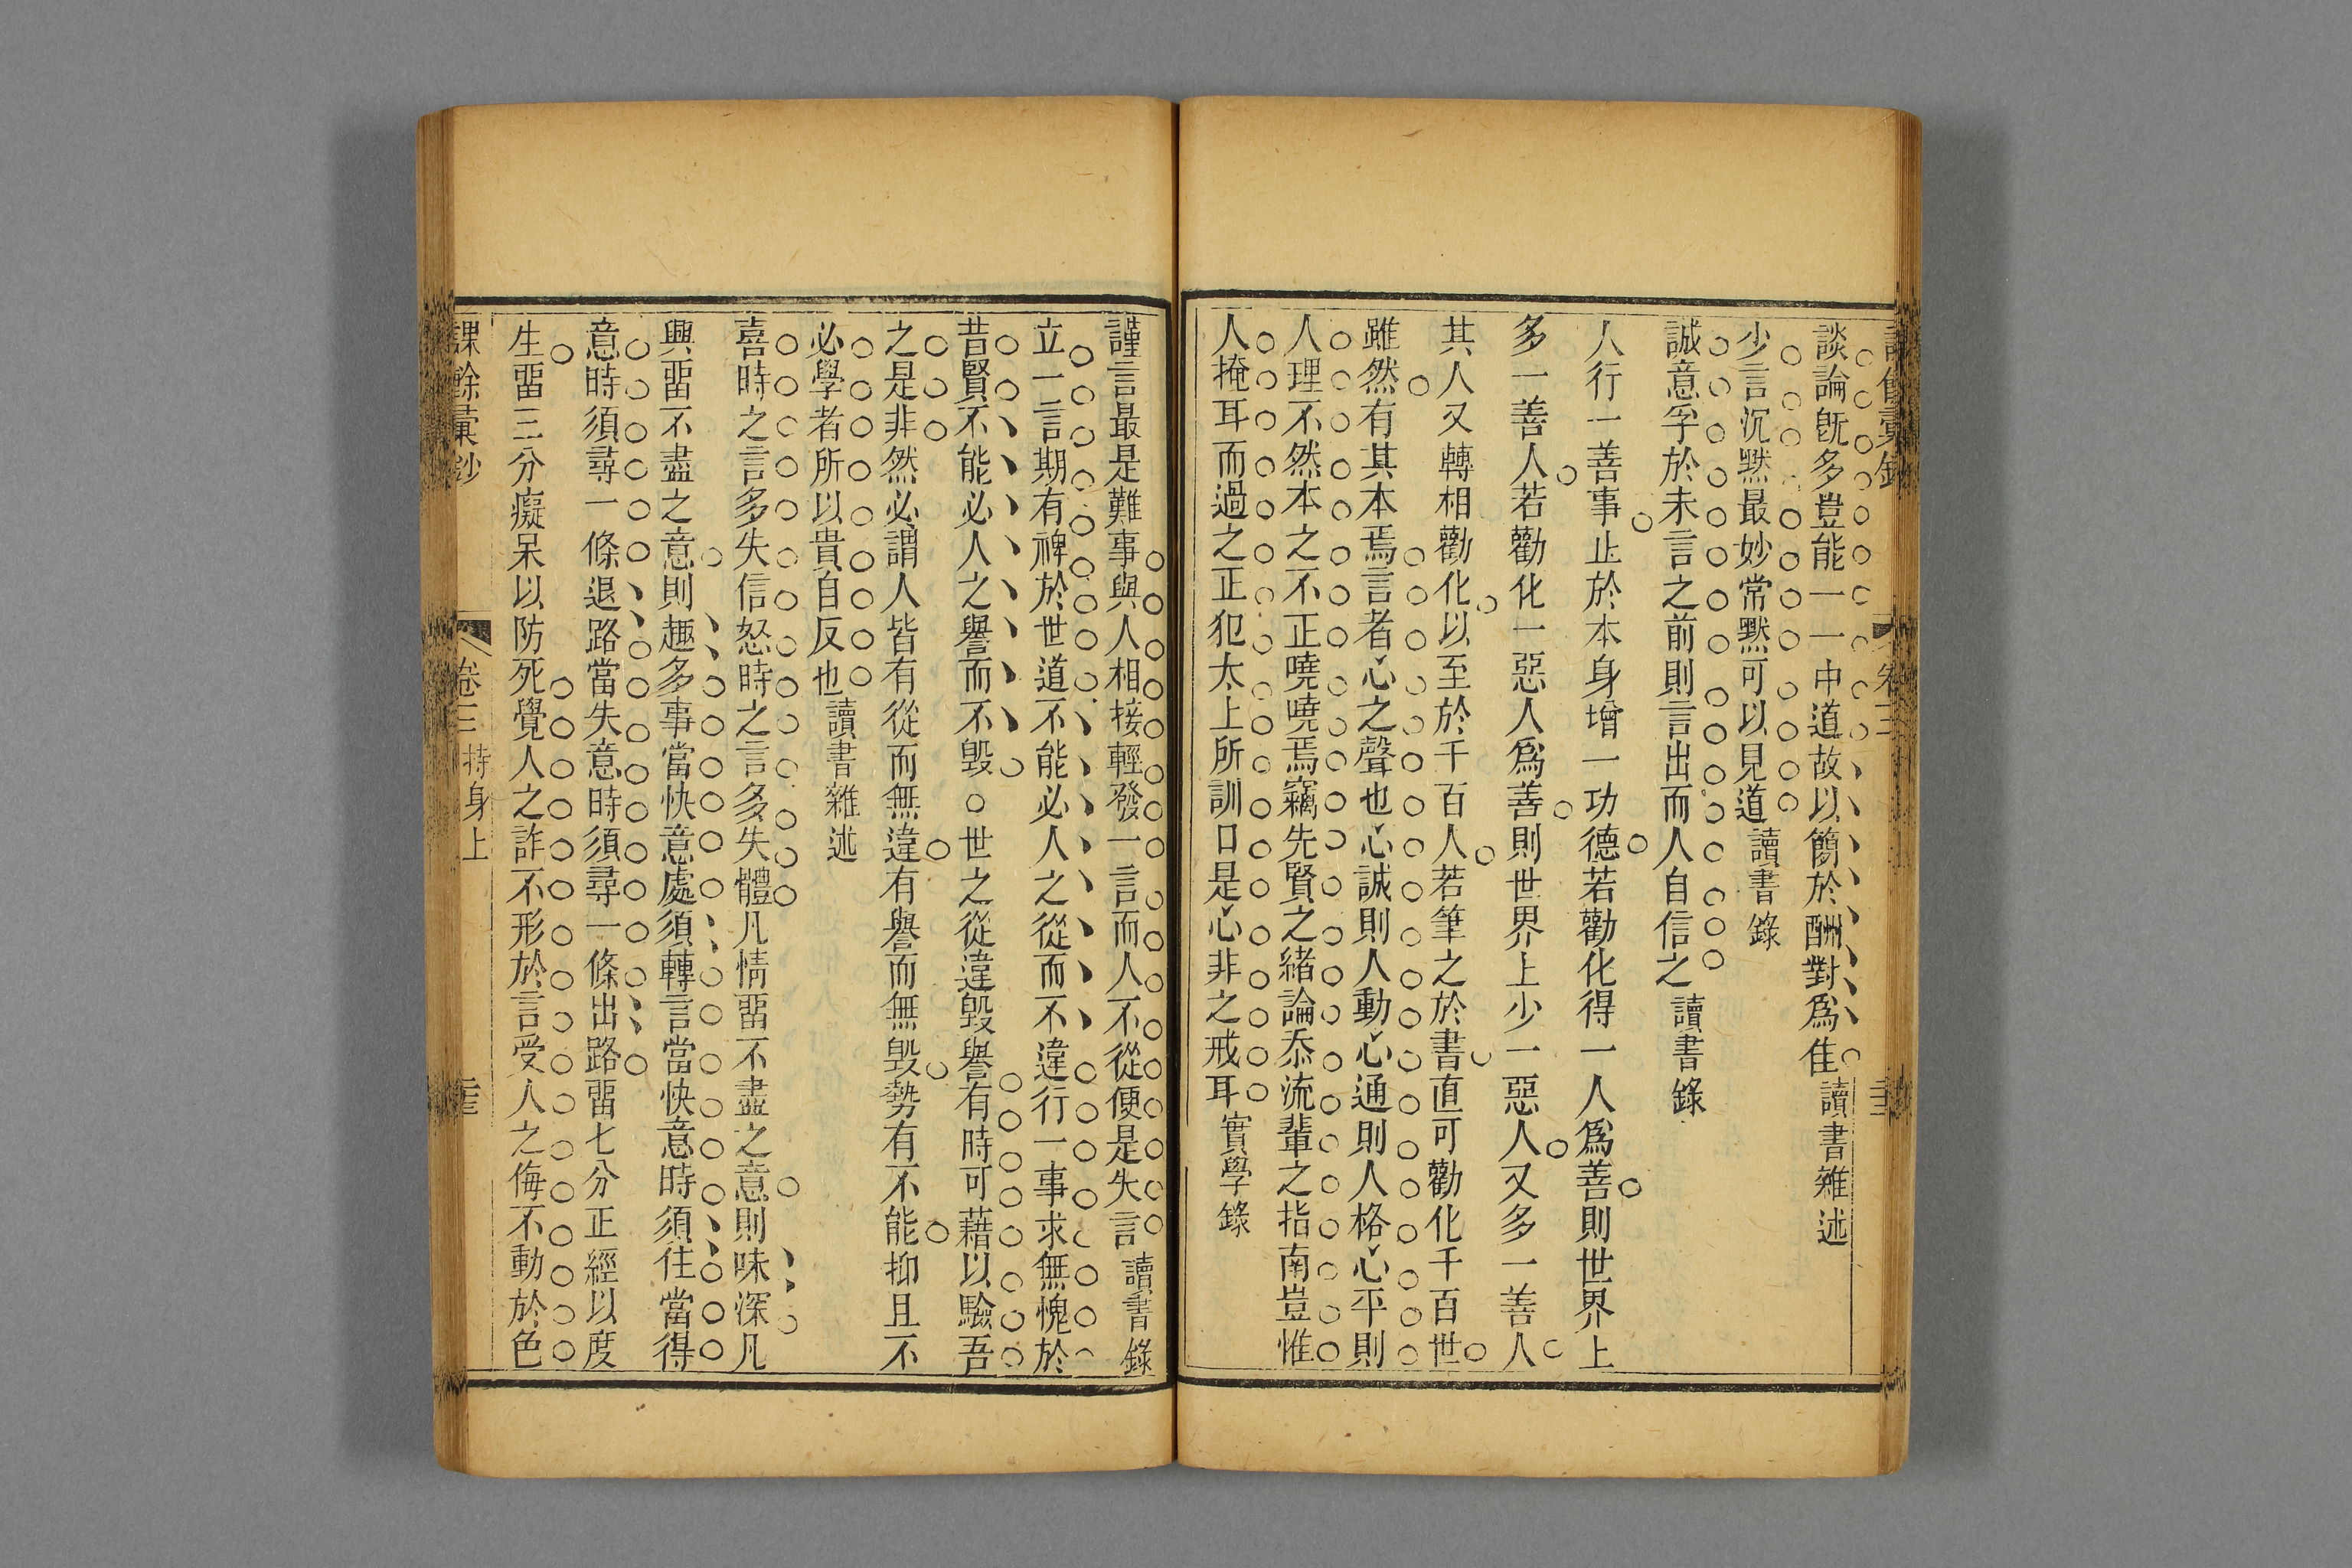 談論既多豈能一一中道故以簡於酬對爲佳讀書雜述
少言沉默最妙常默可以見道讀書錄
誠意孚於未言之前則言出而人自信之讀書錄
人行一善事止於本身增一功德若勸化得一人爲善則世界上
多一善人若勸化一惡人爲善則世界上少一惡人又多一善人
其人又轉相勸化以至於千百人若筆之於書直可勸化千百世
雖然有其本焉言者心之聲也心誠則人動心通則人格心平則
人理不然本之不正嘵嘵焉竊先賢之緒論忝流輩之指南豈惟
人掩耳而過之正犯太上所訓口是心非之戒耳實學錄
謹言最是難事與人相接輕發一言而人不從便是失言讀書錄
立一言期有裨於世道不能必人之從而不違行一事求無愧於
昔賢不能必人之譽而不毀○世之從違毀譽有時可藉以驗吾
之是非然必謂人皆有從而無違有譽而無毀勢有不能抑且不
必學者所以貴自反也讀書雜述
喜時之言多失信怒時之言多失體凡情畱不盡之意則味深凡
興畱不盡之意則趣多事當快意處須轉言當快意時須往當得
意時須尋一條退路當失意時須尋一條出路畱七分正經以度
生畱三分癡呆以防死覺人之詐不形於言受人之侮不動於色
課餘彙鈔
卷三 持身上